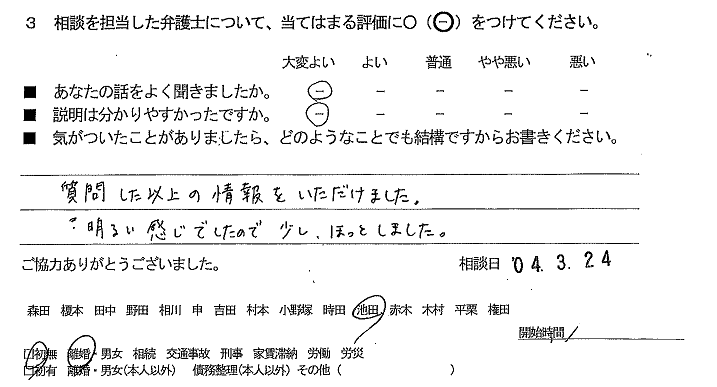 3 相談を担当した弁護士について、当てはまる評価に○（⊖）をつけてください。
大変よい よい 普通 やや悪い 悪い
■ あなたの話をよく聞きましたか。 － － － － －
■ 説明は分かりやすかったですか。 － － － － －
■ 気がついたことがありましたら、どのようなことでも結構ですからお書きください。
質問した以上の情報をいただけました。
明るい感じでしたので少し、ほっとしました。
ご協力ありがとうございました。 相談日 '04.3.24
森田 榎本 田中 野田 相川 申 吉田 村本 小野塚 時田 池田 赤木 木村 平栗 権田
開始時間
□初無 離婚・男女 相続 交通事故 刑事 家賃滞納 労働 労災
□初有 離婚・男女(本人以外) 債務整理(本人以外) その他（ ）